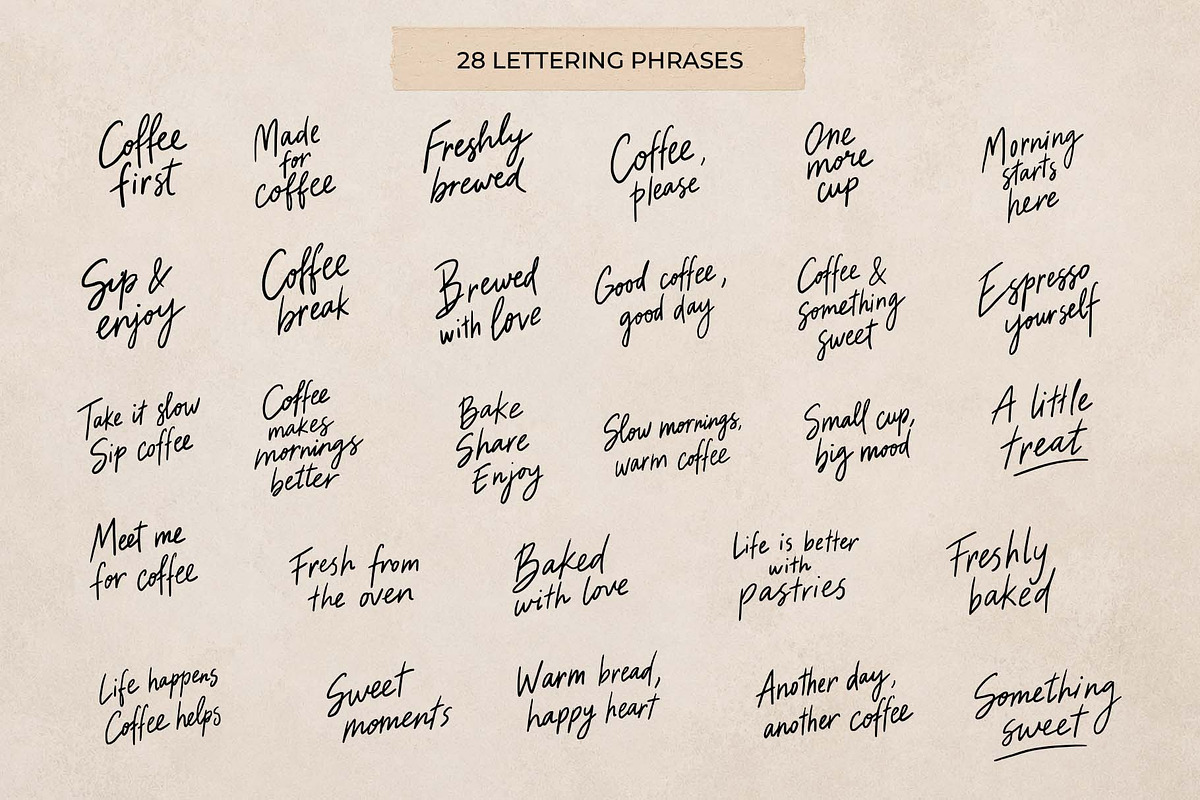 28 LETTERING PHRASES
Coffee
first
Made
for
coffee
Freshly
brewed
Coffee,
please
One
more
cup
Morning
starts
here
Sip &
enjoy
Coffee
break
Brewed
with love
Good coffee,
good day
Coffee &
something
sweet
Espresso
yourself
Take it slow
Sip coffee
Coffee
makes
mornings
better
Bake
Share
Enjoy
Slow mornings,
warm coffee
Small cup,
big mood
A little
treat
Meet me
for coffee
Fresh from
the oven
Baked
with love
Life is better
with
pastries
Freshly
baked
Life happens
Coffee helps
Sweet
moments
Warm bread,
happy heart
Another day,
another coffee
Something
sweet